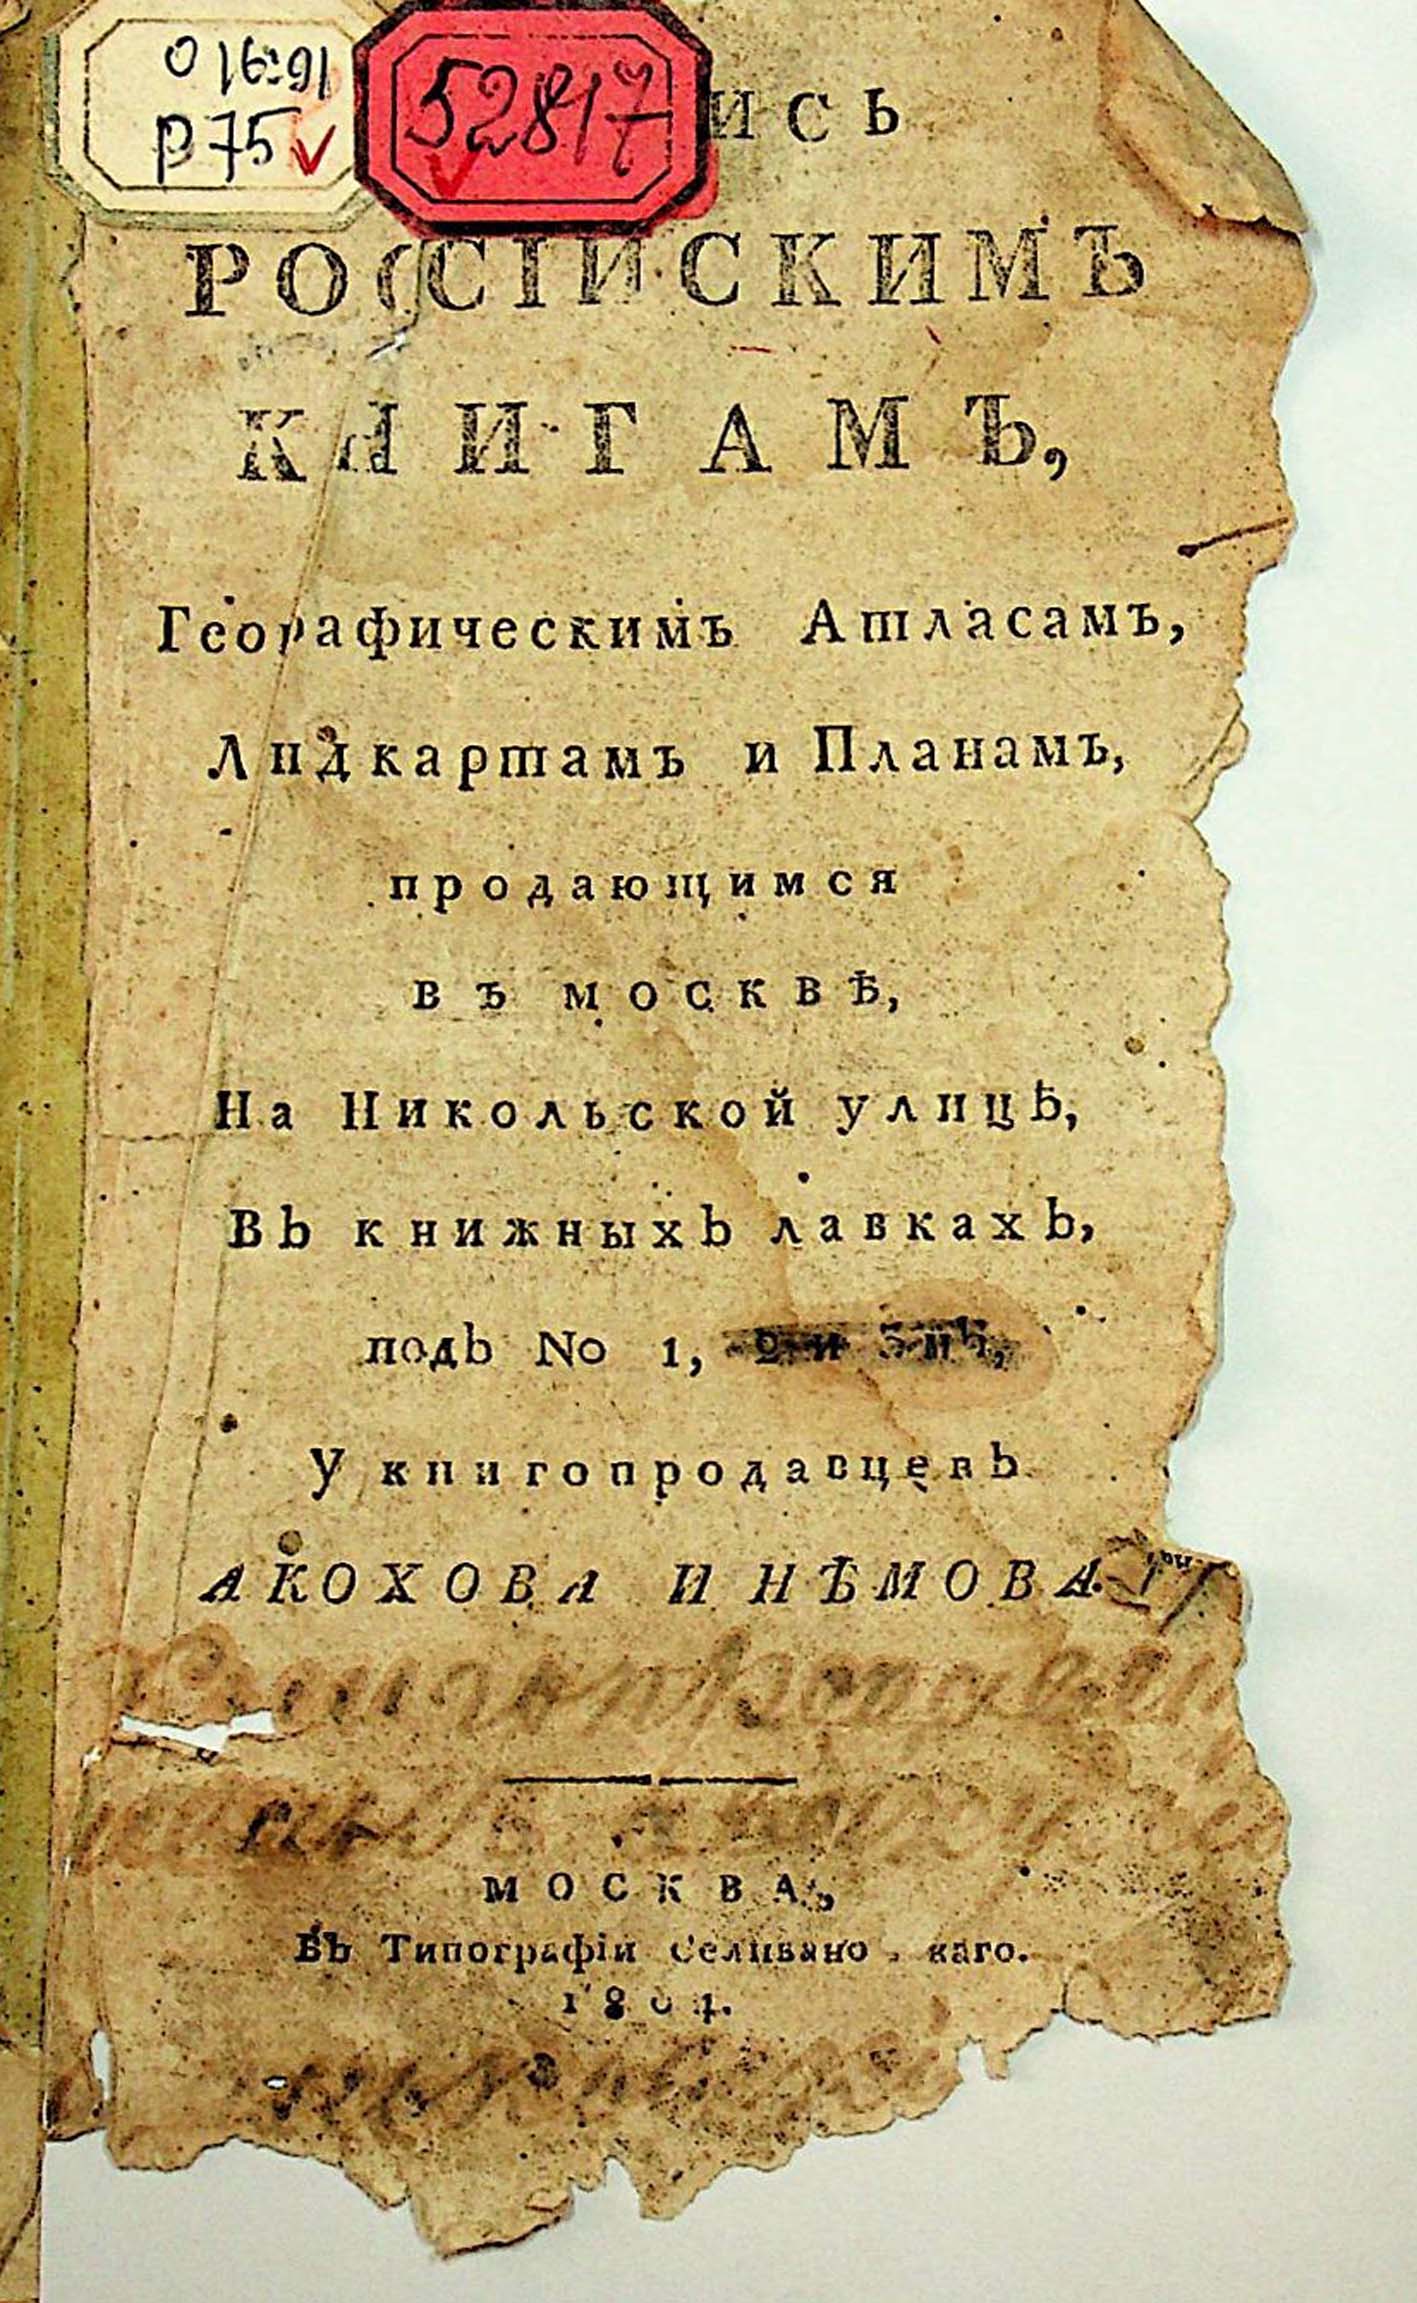 016:91
P75
52817
ИСЬ
РОССІИСКИМЪ
КНИГАМЪ,
Географическимъ Атласамъ,
Лндкартамъ и Планамъ,
продающимся
въ москвѣ,
На Никольской улицѣ,
Въ книжныхъ лавкахъ,
подъ No 1, 2 и 3 мъ,
У книгопродавцевъ
АКОХОВА И НѢМОВА.
МОСКВА,
Въ Типографіи Селивано каго.
1804.